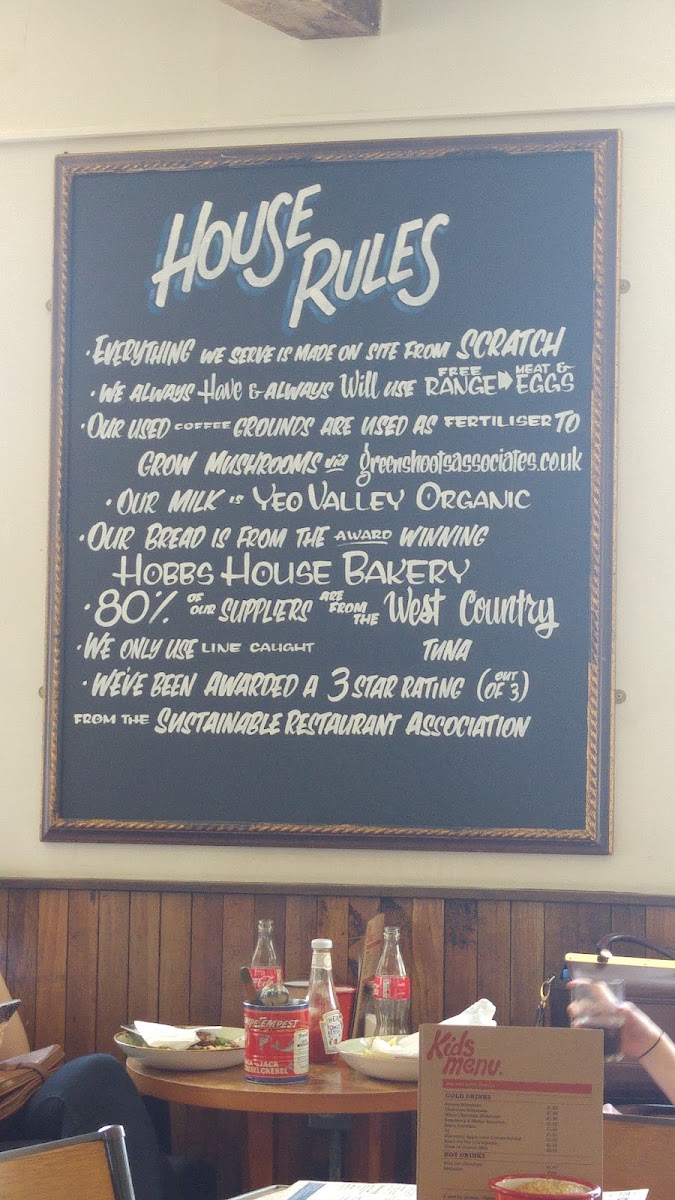 HOUSE
RULES
· EVERYTHING WE SERVE IS MADE ON SITE FROM SCRATCH
· WE ALWAYS Have & ALWAYS Will USE FREE RANGE MEAT & EGGS
· OUR USED COFFEE GROUNDS ARE USED AS FERTILISER TO
GROW MUSHROOMS via greenshootsassociates.co.uk
· OUR MILK IS YEO VALLEY ORGANIC
· OUR BREAD IS FROM THE AWARD WINNING
HOBBS HOUSE BAKERY
· 80% OF OUR SUPPLIERS ARE FROM THE West Country
· WE ONLY USE LINE CAUGHT TUNA
· WE'VE BEEN AWARDED A 3 STAR RATING (OUT OF 3)
FROM THE SUSTAINABLE RESTAURANT ASSOCIATION
TEMPEST
JACK
Kids
menu.
COLD DRINKS
HOT DRINKS